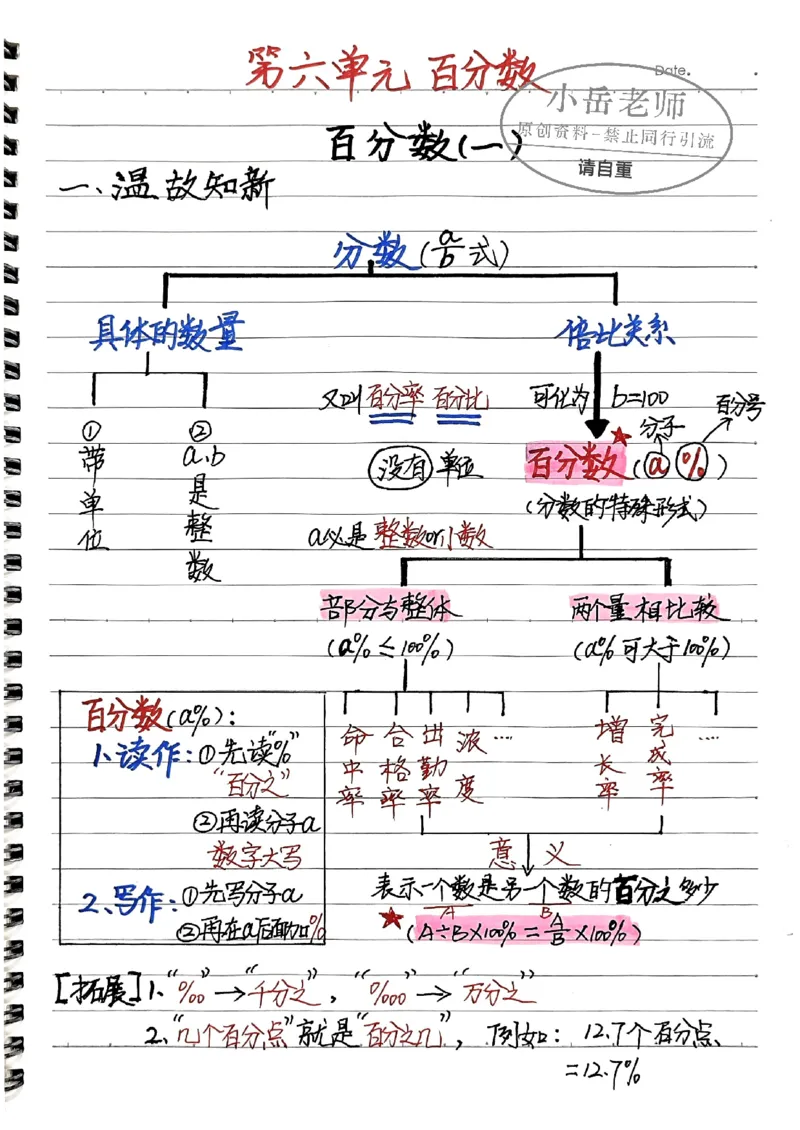 第六单元 百分数
Date.
小岳老师
原创资料-禁止同行引流
请自重
百分数(一)
一、温故知新
分数(a/b式)
具体的数量
倍比关系
又叫百分率 百分比
可化为 b=100
百分号
分子
① 带单位
② a、b是整数
没有单位
百分数(a%)
(分数的特殊形式)
a必是整数or小数
部分与整体
两个量相比较
(a%≤100%)
(a%可大于100%)
百分数(a%):
1、读作:①先读"%"
"百分之"
②再读分子a
数字大写
2、写作:①先写分子a
②再在a后面加%
命中率
合格率
出勤率
浓度
....
增长率
完成率
....
意义
表示一个数是另一个数的百分之多少
A
B
(A÷B×100%=A/B×100%)
[拓展]1、"‰"→"千分之", "‱"→"万分之"
2、"几个百分点"就是"百分之几", 例如: 12.7个百分点
=12.7%